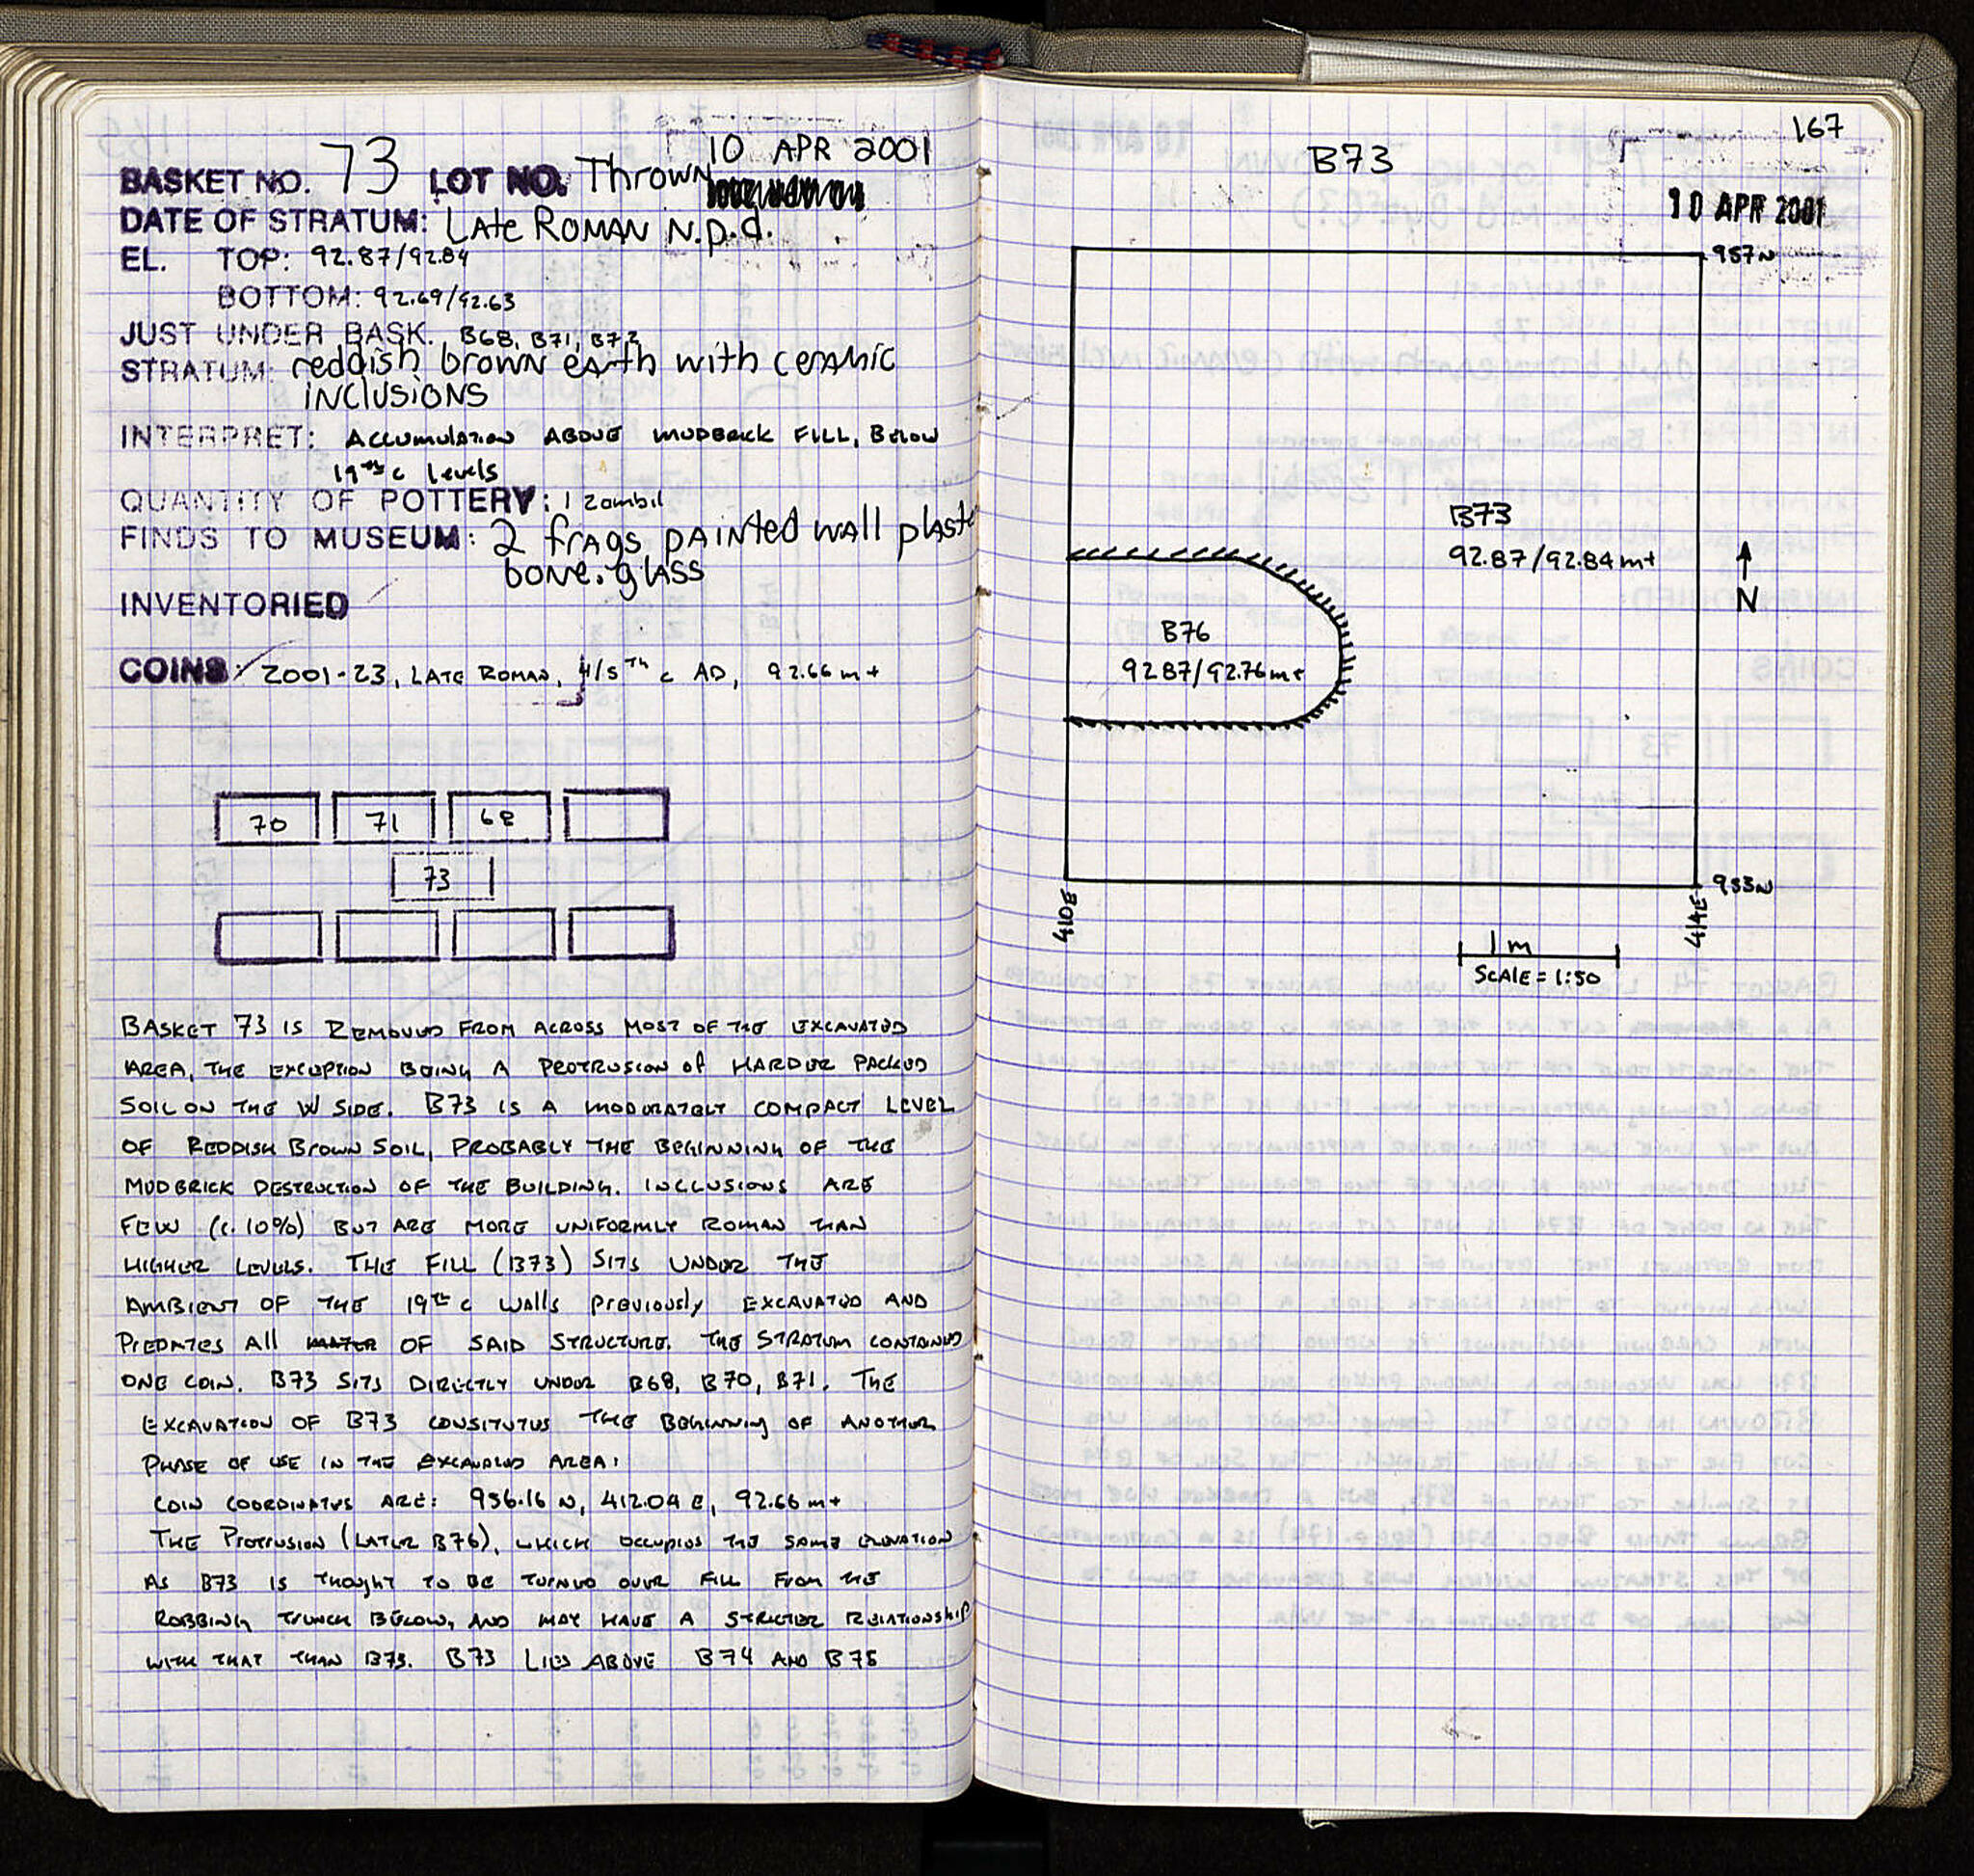 10 APR 2001
BASKET NO. 73 LOT NO. Thrown
DATE OF STRATUM: Late Roman N.p.d.
EL. TOP: 92.87/92.84
BOTTOM: 92.69/92.63
JUST UNDER BASK. B68, B71, B72
STRATUM: reddish brown earth with ceramic
inclusions
INTERPRET: Accumulation above mudbrick fill, below
19th c levels
QUANTITY OF POTTERY: 1 zambil
FINDS TO MUSEUM: 2 frags painted wall plaste
bone. glass
INVENTORIED
COINS: 2001-23, LATE ROMAN, 4/5th c AD, 92.66 m+
70 71 68
73
BASKET 73 IS REMOVED FROM ACROSS MOST OF THE EXCAVATED
AREA, THE EXCEPTION BEING A PROTRUSION of HARDER PACKED
SOIL ON THE W SIDE. B73 IS A MODERATELY COMPACT LEVEL
OF REDDISH BROWN SOIL, PROBABLY THE BEGINNING OF THE
MUDBRICK DESTRUCTION OF THE BUILDING. INCLUSIONS ARE
FEW (c. 10%) BUT ARE MORE UNIFORMLY ROMAN THAN
HIGHER LEVELS. THE FILL (B73) SITS UNDER THE
AMBIENT OF THE 19th c walls previously EXCAVATED AND
PREDATES All OF SAID STRUCTURE. THE STRATUM CONTAINED
ONE COIN. B73 SITS DIRECTLY UNDER B68, B70, B71. THE
EXCAVATION OF B73 CONSITUTES THE BEGINNING OF ANOTHER
PHASE OF USE IN THE EXCAVATED AREA.
COIN COORDINATES ARE: 956.16 N, 412.04 E, 92.66 m+
THE PROTRUSION (LATER B76), WHICH OCCUPIES THE SAME ELEVATION
AS B73 IS THOUGHT TO BE TURNED OVER FILL FROM THE
ROBBING TRENCH BELOW, AND MAY HAVE A STRICTER RELATIONSHIP
WITH THAT THAN B73. B73 LIES ABOVE B74 AND B75
167
B73
10 APR 2001
957N
B73
92.87/92.84m+
N
B76
92.87/92.76m+
953N
410E
414E
1m
SCALE = 1:50